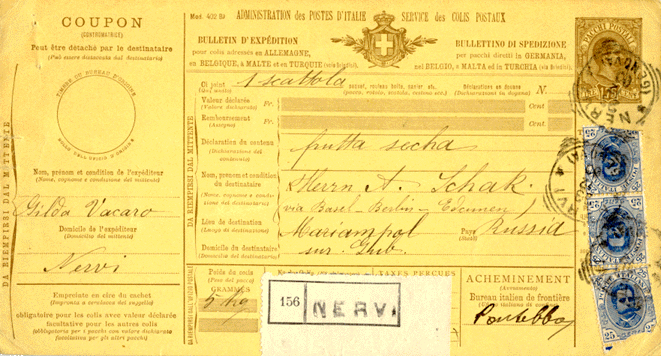 COUPON
(CONTROMATRICE)
Peut être détaché par le destinataire
(Può essere distaccato dal destinatario)
TIMBRE DU BUREAU D'ORIGINE
Nom, prénom et condition de l'expéditeur
(Nome, cognome e condizione del mittente)
Gilda Vacaro
Domicile de l'expéditeur
(Domicilio del mittente)
Nervi
Empreinte en cire du cachet
(Impronta a ceralacca del suggello)
obligatoire pour les colis avec valeur déclarée
facultative pour les autres colis
(obbligatoria per i pacchi con valore dichiarato
facoltativa per gli altri pacchi)
DA RIEMPIRSI DAL MITTENTE
Mod. 402
ADMINISTRATION des POSTES D'ITALIE
SERVICE des COLIS POSTAUX
BULLETIN D'EXPÉDITION
pour colis adressés en ALLEMAGNE,
en BELGIQUE, à MALTE et en TURQUIE
BULLETTINO DI SPEDIZIONE
per pacchi diretti in GERMANIA,
nel BELGIO, a MALTA ed in TURCHIA
PACCHI POSTALI
Ci joint
1 scattola
N.
DA RIEMPIRSI DAL MITTENTE
Valeur déclarée
(Valore dichiarato)
Fr.
Cent
Remboursement
(Assegno)
Fr.
Cent
Déclaration du contenu
(Dichiarazione del contenuto)
frutta secha
Nom, prénom et condition
du destinataire
(Nome, cognome e condizione
del destinatario)
Herrn A. Schak
via Basel-Berlin-
Lieu de destination
(Luogo di destinazione)
Mariampol
Pays
Russia
Domicile du destinataire
(Domicilio del destinatario)
sur. Gub.
Poids du colis
(Peso del pacco)
GRAMMES
5 Kg
TAXES PERÇUES
156
NERVI
ACHEMINEMENT
(Avviamento)
Bureau italien de frontière
(Ufficio italiano di confine)
Pontebba
NERVI
25
25
25
25